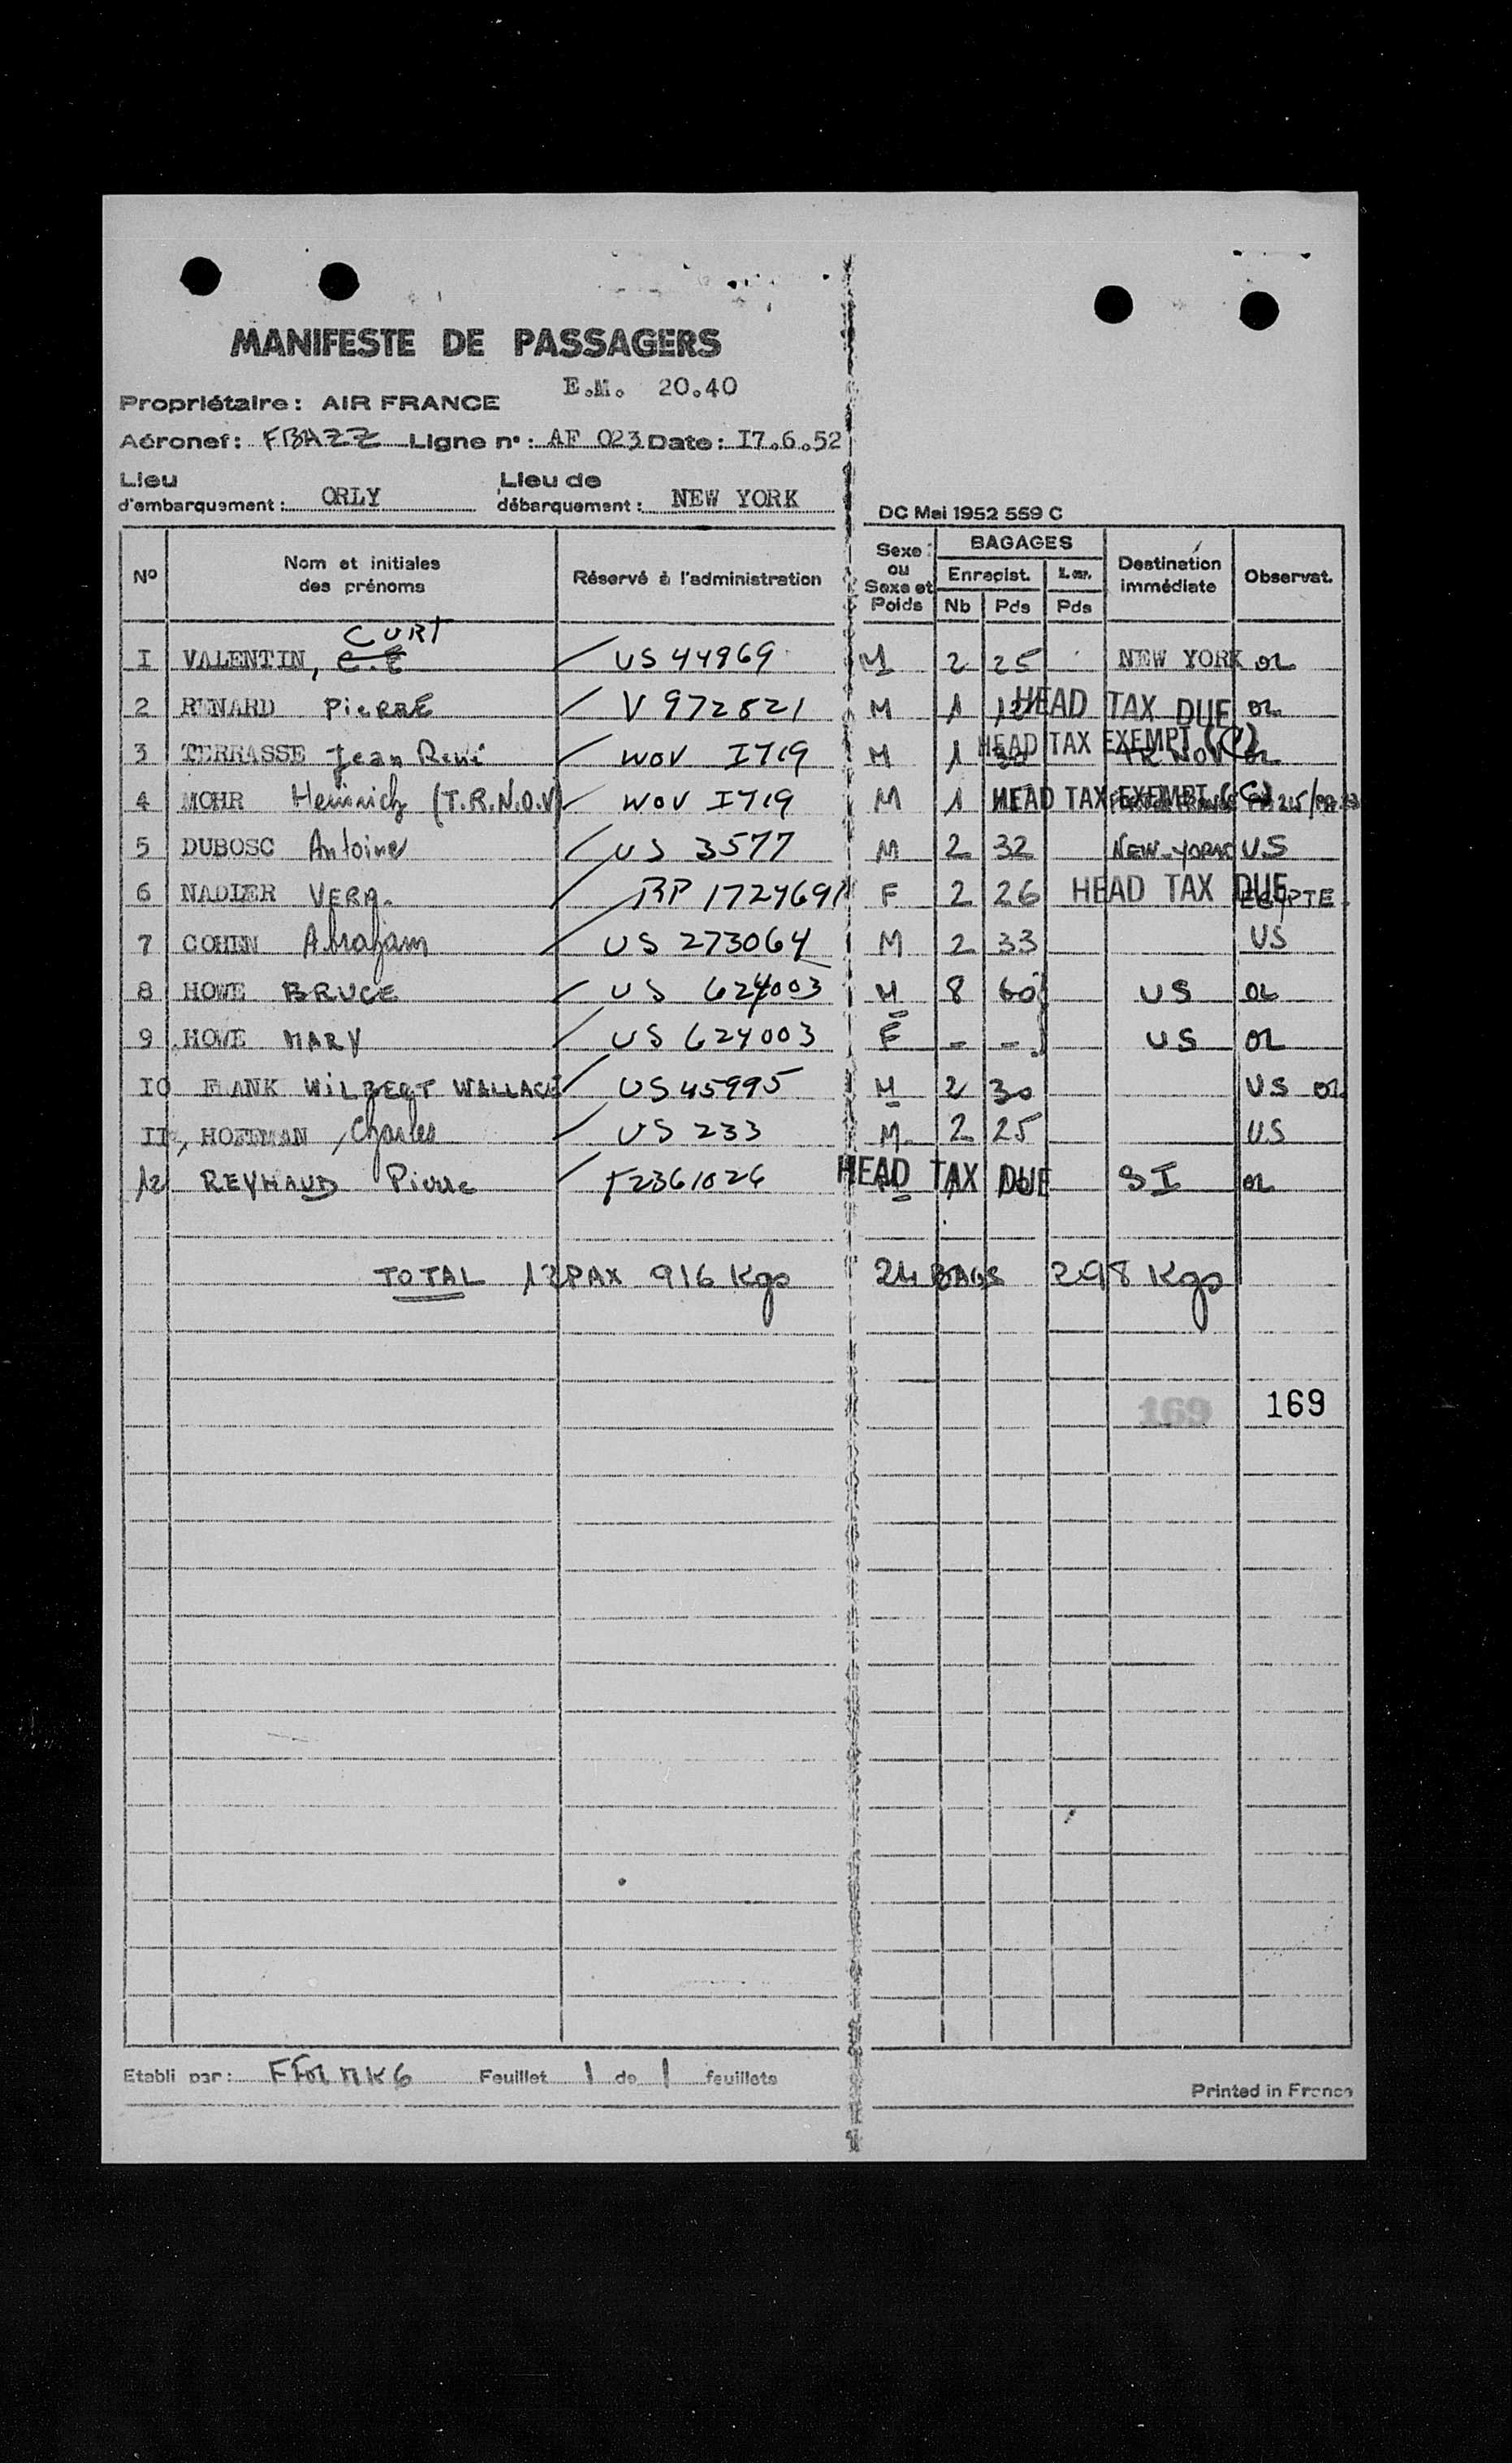 MANIFESTE DE PASSAGERS
E.M. 20.40
Propriétaire: AIR FRANCE
Aéronef: FBAZZ Ligne n°: AF 023 Date: I7.6.52
Lieu d'embarquement: ORLY Lieu de débarquement: NEW YORK
DC Mai 1952 559 C
N° Nom et initiales des prénoms Réservé à l'administration Sexe ou Sexe et Poids BAGAGES Enregist. Nb Pds Pds Destination immédiate Observat.
CURT
I VALENTIN, US 44969 M 2 25 NEW YORK OR
2 RENARD PiERRE V 972821 M 1 HEAD TAX DUE OR
3 TERRASSE Jean René WOV I719 M 1 HEAD TAX EXEMPT (C) TR NOV OR
4 MOHR Heinrich (T.R.N.O.V) WOV I719 M 1 HEAD TAX EXEMPT (C)
5 DUBOSC Antoine US 3577 M 2 32 NEW-YORK US
6 NADLER VERA. RP 1724691 F 2 26 HEAD TAX DUE EGYPTE.
7 COHEN Abraham US 273064 M 2 33 US
8 HOWE BRUCE US 624003 M 8 60 US OR
9 HOWE MARY US 624003 F - - US OR
IO FRANK WILBERT WALLACE US 45995 M 2 30 US OR
II, HOFFMAN, Charles US 233 M 2 25 US
12 REYNAUD Pierre F2361026 HEAD TAX DUE SI OR
TOTAL 12 PAX 916 Kgs 24 BAGS 298 Kgs
169 169
Etabli par: Feuillet 1 de 1 feuillets
Printed in France